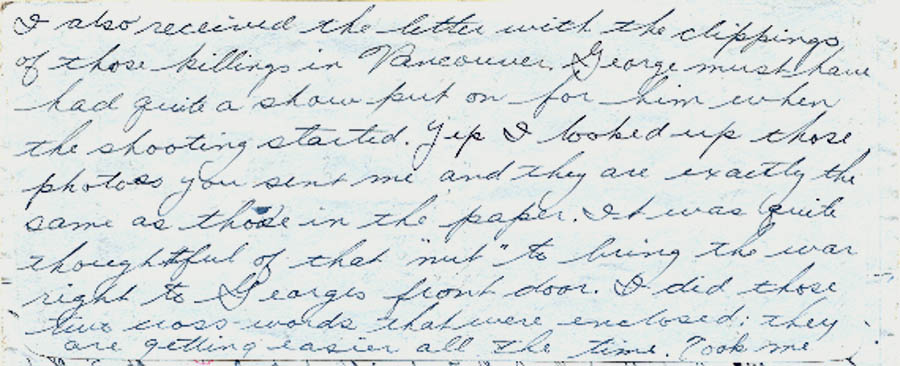 I also received the letter with the clippings
of those killings in Vancouver. George must have
had quite a show put on for him when
the shooting started. Yip I looked up those
photoes you sent me and they are exactly the
same as those in the paper. It was quite
thoughtful of that "nut" to bring the war
right to Georges front door. I did those
two cross-words that were enclosed; they
are getting easier all the time. Took me